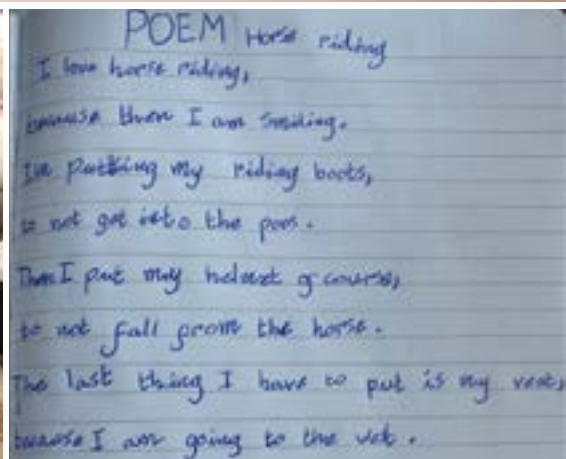 POEM Horse riding
I love horse riding,
because then I am smiling.
I'm putting my riding boots,
to not get into the poos.
Then I put my helmet of course,
to not fall from the horse.
The last thing I have to put is my vest,
because I am going to the